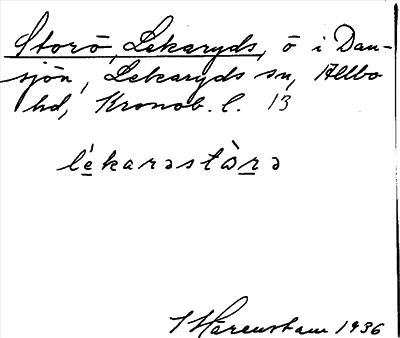 Storö, Lekaryds, ö i Dan-
sjön, Lekaryds sn, Allbo
hd, Kronob. l. 13
lékarəstὰrə
I Härenstam 1936